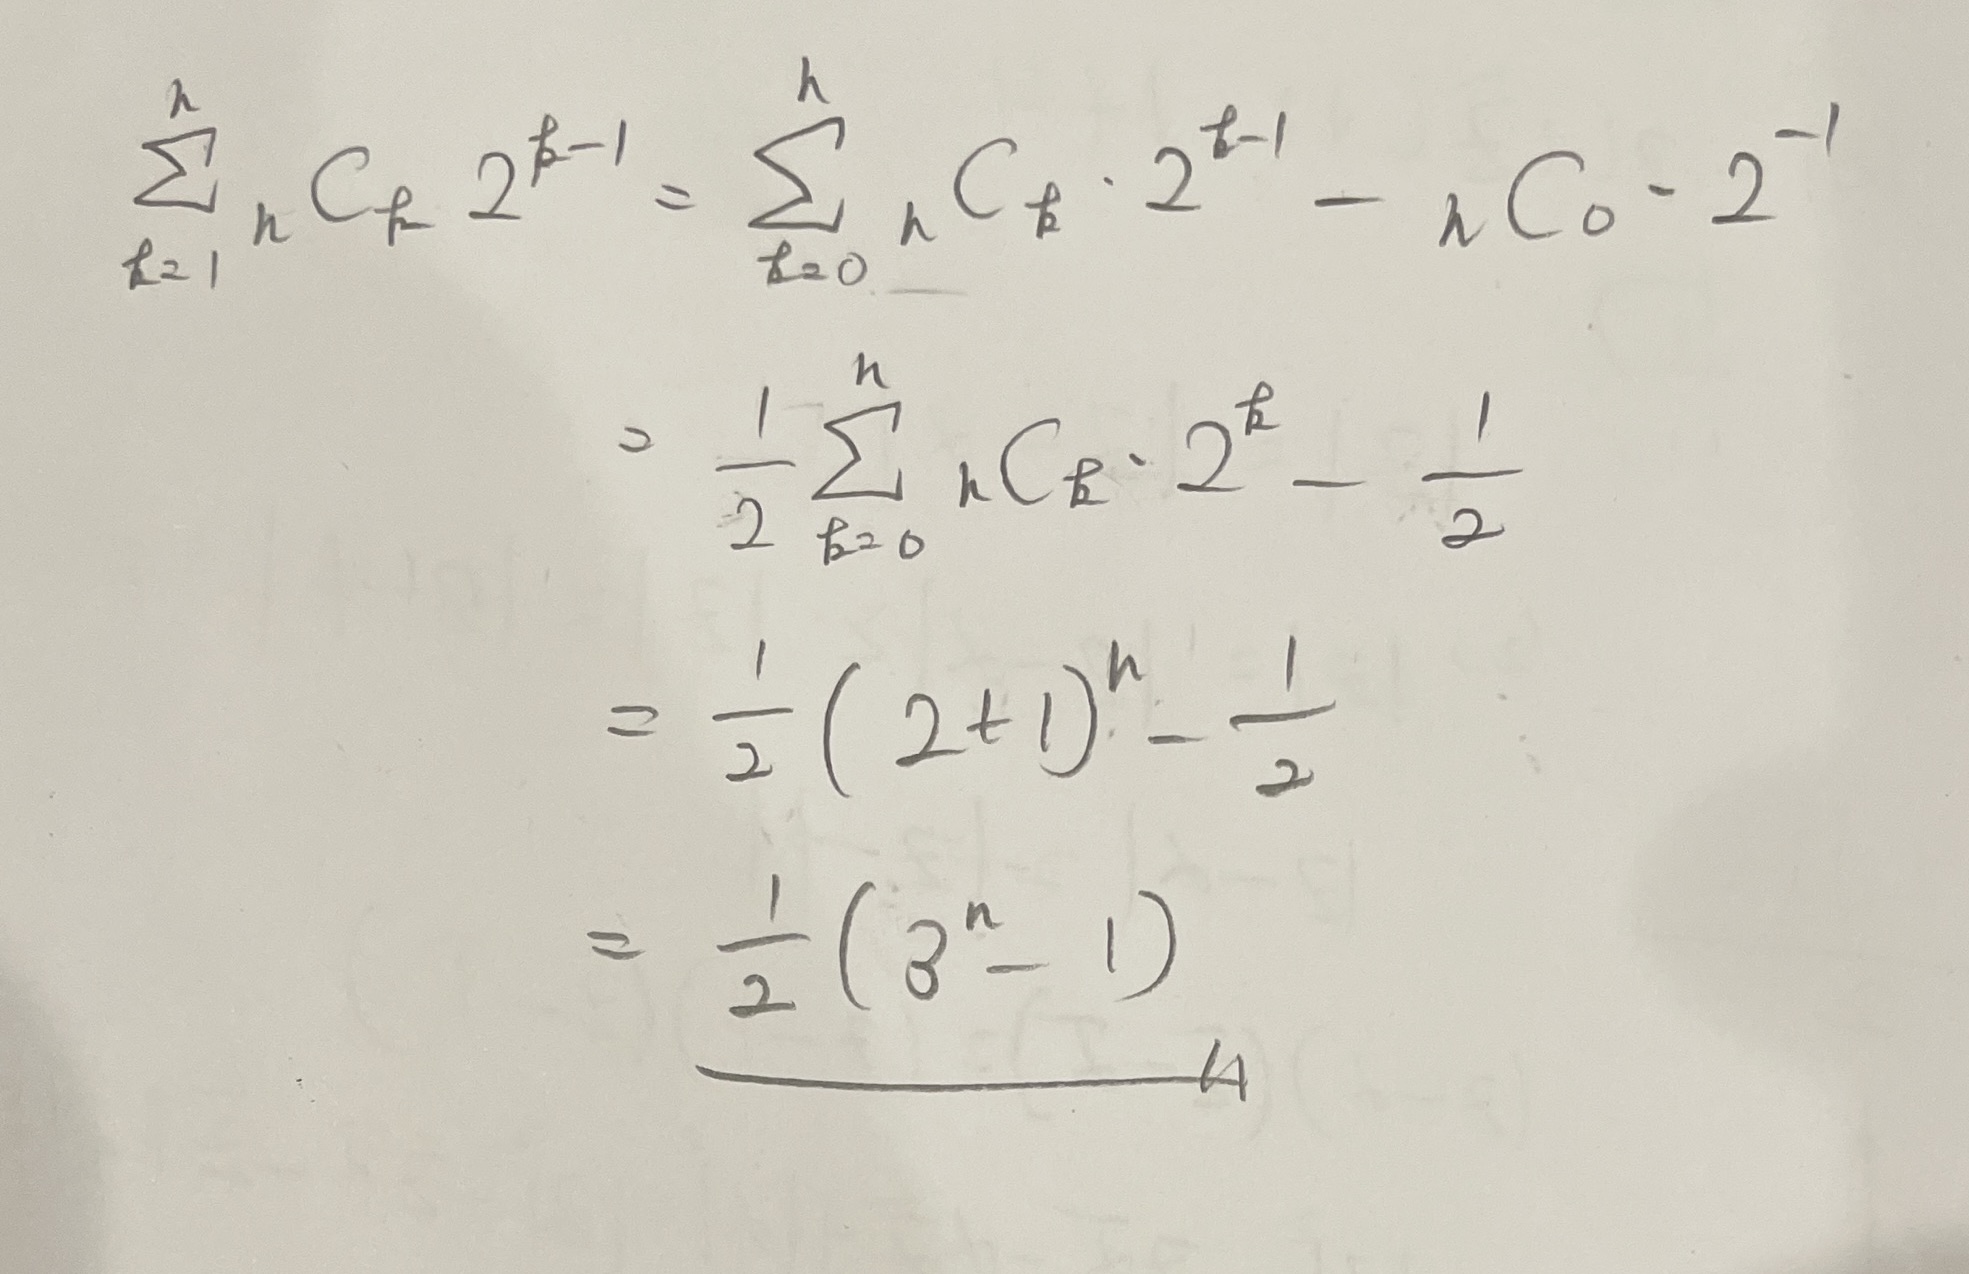 \sum_{k=1}^{n} {}_{n}C_{k} 2^{k-1} = \sum_{k=0}^{n} {}_{n}C_{k} \cdot 2^{k-1} - {}_{n}C_{0} \cdot 2^{-1}
= \frac{1}{2} \sum_{k=0}^{n} {}_{n}C_{k} \cdot 2^{k} - \frac{1}{2}
= \frac{1}{2} (2+1)^{n} - \frac{1}{2}
= \frac{1}{2} (3^{n} - 1)